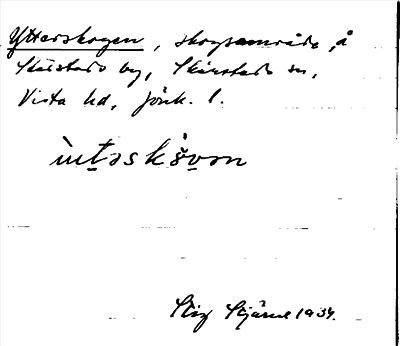 Ytterskogen, skogsområde, å
Skärstads by, Skärstads sn,
Vista hd, Jönk. l.
Stig Stjärne 1934.